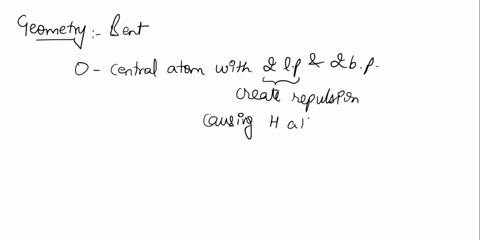 Geometry :- Bent
O - central atom with 2 l.p & 2 b.p.
create repulsion
causing H at